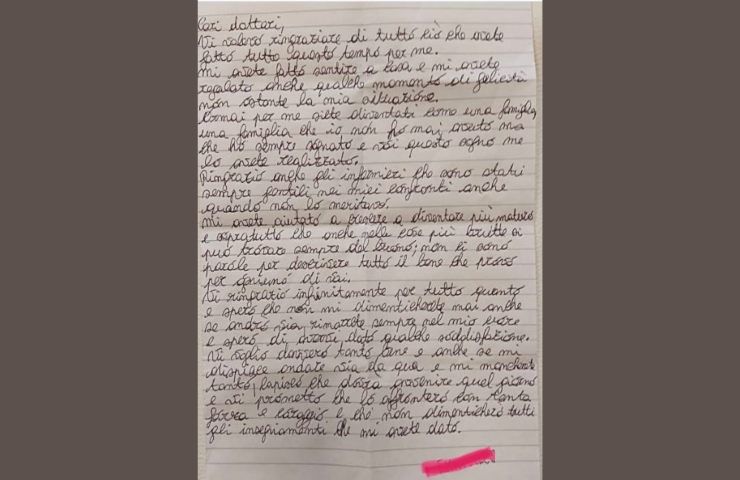 Cari dottori,
Vi volevo ringraziare di tutto ciò che avete
fatto tutto questo tempo per me.
Mi avete fatto sentire a casa e mi avete
regalato anche qualche momento di felicità
non ostante la mia situazione.
Ormai per me siete diventati come una famiglia,
una famiglia che io non ho mai avuto ma
che ho sempre sognato e voi questo sogno me
lo avete realizzato.
Ringrazio anche gli infermieri che sono stati
sempre gentili nei miei confronti anche
quando non lo meritavo.
Mi avete aiutato a crescere a diventare più maturo
e sopratutto che anche nelle cose più brutte si
può trovare sempre del buono; non ci sono
parole per descrivere tutto il bene che provo
per ognuno di voi.
Vi ringrazio infinitamente per tutto quanto
e spero che non mi dimenticherete mai anche
se andrò via, rimarrete sempre nel mio cuore
e spero di avervi dato qualche soddisfazione.
Vi voglio davvero tanto bene e anche se mi
dispiace andare via da qua e mi mancherete
tanto, capisco che dovrà avvenire quel giorno
e vi prometto che lo affronterò con tanta
forza e coraggio e che non dimenticherò tutti
gli insegnamenti che mi avete dato.